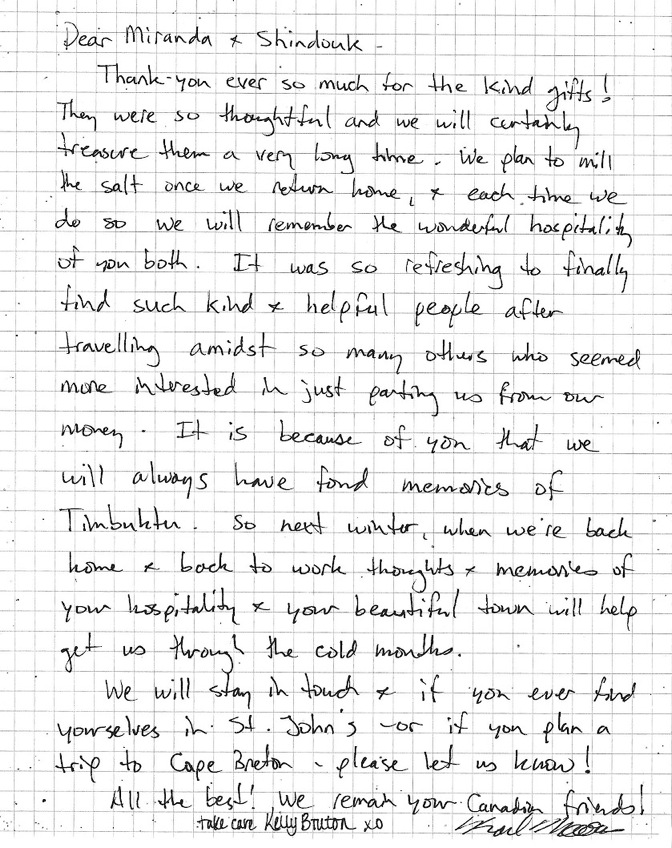 Dear Miranda & Shindouk -
Thank-you ever so much for the kind gifts!
They were so thoughtful and we will certainly
treasure them a very long time. We plan to mill
the salt once we return home, & each time we
do so we will remember the wonderful hospitality
of you both. It was so refreshing to finally
find such kind & helpful people after
travelling amidst so many others who seemed
more interested in just parting us from our
money. It is because of you that we
will always have fond memories of
Timbuktu. So next winter, when we're back
home & back to work thoughts & memories of
your hospitality & your beautiful town will help
get us through the cold months.
We will stay in touch & if you ever find
yourselves in St. John's - or if you plan a
trip to Cape Breton - please let us know!
All the best! We remain your Canadian friends!
take care Kelly Bruton xo